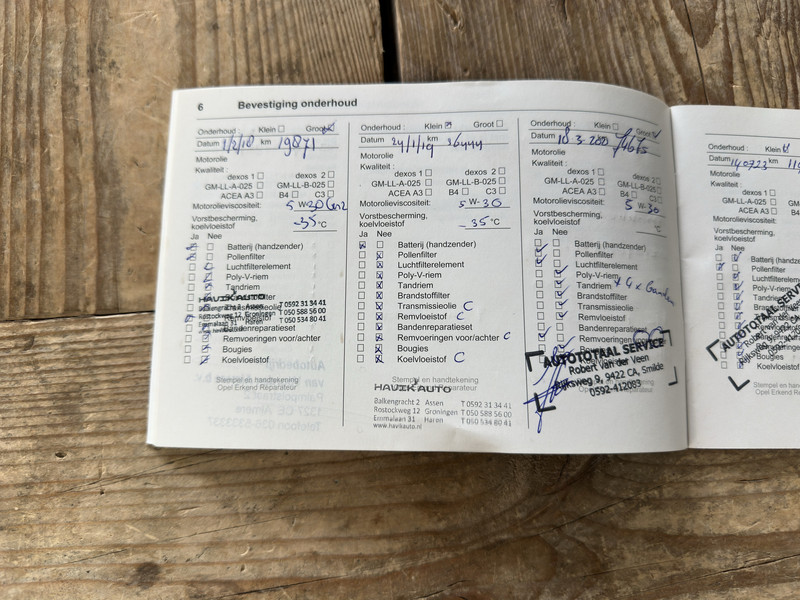 6 Bevestiging onderhoud
Onderhoud : Klein Groot
Datum 1/2/18 km 19871
Motorolie
Kwaliteit :
dexos 1 dexos 2
GM-LL-A-025 GM-LL-B-025
ACEA A3 B4 C3
Motorolieviscositeit: 5 W-30
Vorstbescherming,
koelvloeistof -35 °C
Ja Nee
Batterij (handzender)
Pollenfilter
Luchtfilterelement
Poly-V-riem
Tandriem
HAVIKAUTO
Assen T 0592 31 34 41
Rostockweg 12 Groningen T 050 588 56 00
Eremalaan 31 Haren T 050 534 80 41
www.havikauto.nl
Bandenreparatieset
Remvoeringen voor/achter
Bougies
Koelvloeistof
Stempel en handtekening
Opel Erkend Reparateur
Onderhoud : Klein Groot
Datum 24/1/19 km 36444
Motorolie
Kwaliteit :
dexos 1 dexos 2
GM-LL-A-025 GM-LL-B-025
ACEA A3 B4 C3
Motorolieviscositeit: 5 W-30
Vorstbescherming,
koelvloeistof -35 °C
Ja Nee
Batterij (handzender)
Pollenfilter
Luchtfilterelement
Poly-V-riem
Tandriem
Brandstoffilter
Transmissieolie C
Remvloeistof C
Bandenreparatieset
Remvoeringen voor/achter C
Bougies
Koelvloeistof C
Stempel en handtekening
HAVIKAUTO
Balkengracht 2 Assen T 0592 31 34 41
Rostockweg 12 Groningen T 050 588 56 00
Eremalaan 31 Haren T 050 534 80 41
www.havikauto.nl
Onderhoud : Klein Groot
Datum 18-3-2020 km
Motorolie
Kwaliteit :
dexos 1 dexos 2
GM-LL-A-025 GM-LL-B-025
ACEA A3 B4 C3
Motorolieviscositeit: 5 W-30
Vorstbescherming,
koelvloeistof °C
Ja Nee
Batterij (handzender)
Pollenfilter
Luchtfilterelement
Poly-V-riem
Tandriem
Brandstoffilter
Transmissieolie
Remvloeistof
Bandenreparatieset
Remvoeringen
AUTOTOTAAL SERVICE
Robert van der Veen
Rijksweg 9, 9422 CA, Smilde
0592-412083
Stempel en handtekening
Opel Erkend Reparateur
Onderhoud : Klein
Datum 140723 km
Motorolie
Kwaliteit :
dexos 1
GM-LL-A-025
ACEA A3
Motorolieviscositeit:
Vorstbescherming,
koelvloeistof
Ja Nee
Batterij
Pollenfilter
Luchtfilterelement
Poly-V-riem
Tandriem
AUTOTOTAAL SERVICE
Bougies
Koelvloeistof
Stempel en handtekening
Opel Erkend Reparateur